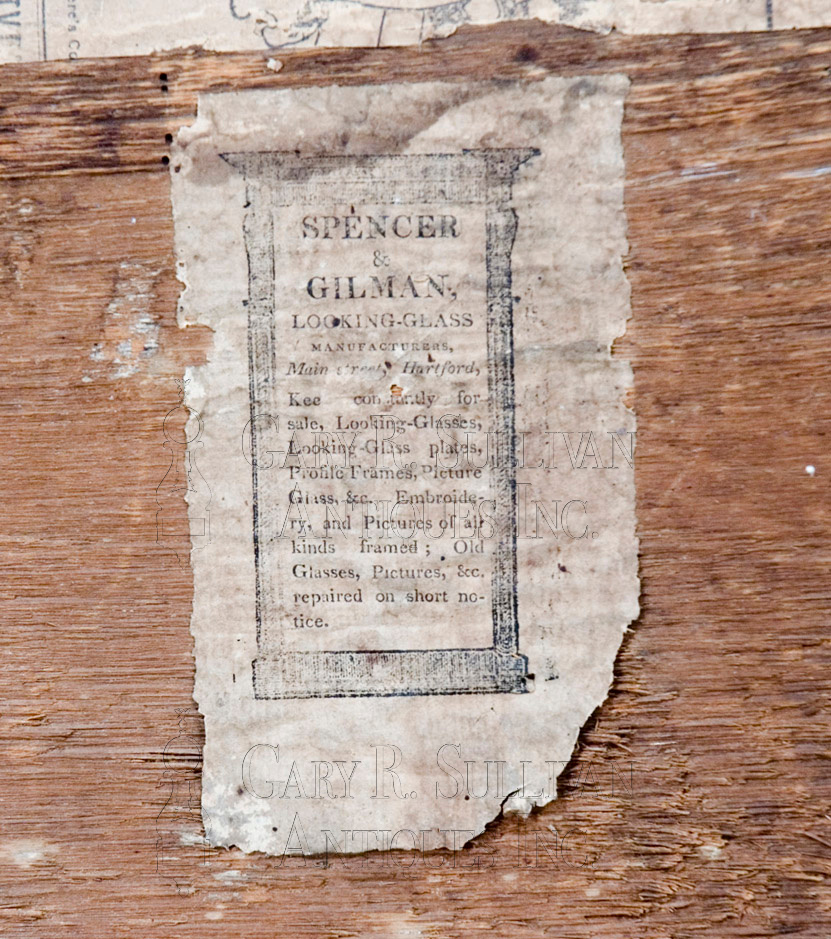 SPENCER
&
GILMAN,
LOOKING-GLASS
MANUFACTURERS,
Main street, Hartford,
Kee constantly for
sale, Looking-Glasses,
Looking-Glass plates,
Profile Frames, Picture
Glass, &c. Embroide-
ry, and Pictures of all
kinds framed; Old
Glasses, Pictures, &c.
repaired on short no-
tice.
GARY R. SULLIVAN
ANTIQUES INC.
GARY R. SULLIVAN
ANTIQUES INC.